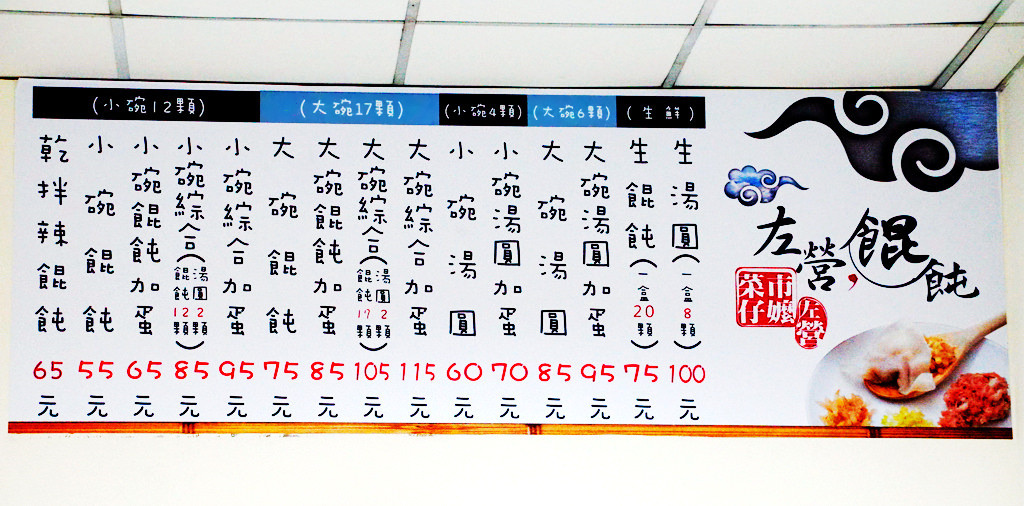 (小碗12顆)
(大碗17顆)
(小碗4顆)
(大碗6顆)
(生鮮)
乾拌辣餛飩 65元
小碗餛飩 55元
小碗餛飩加蛋 65元
小碗綜合(餛飩12顆湯圓2顆) 85元
小碗綜合加蛋 95元
大碗餛飩 75元
大碗餛飩加蛋 85元
大碗綜合(餛飩17顆湯圓2顆) 105元
大碗綜合加蛋 115元
小碗湯圓 60元
小碗湯圓加蛋 70元
大碗湯圓 85元
大碗湯圓加蛋 95元
生餛飩(一盒20顆) 75元
生湯圓(一盒8顆) 100元
左營餛飩
菜市仔嬤
左營